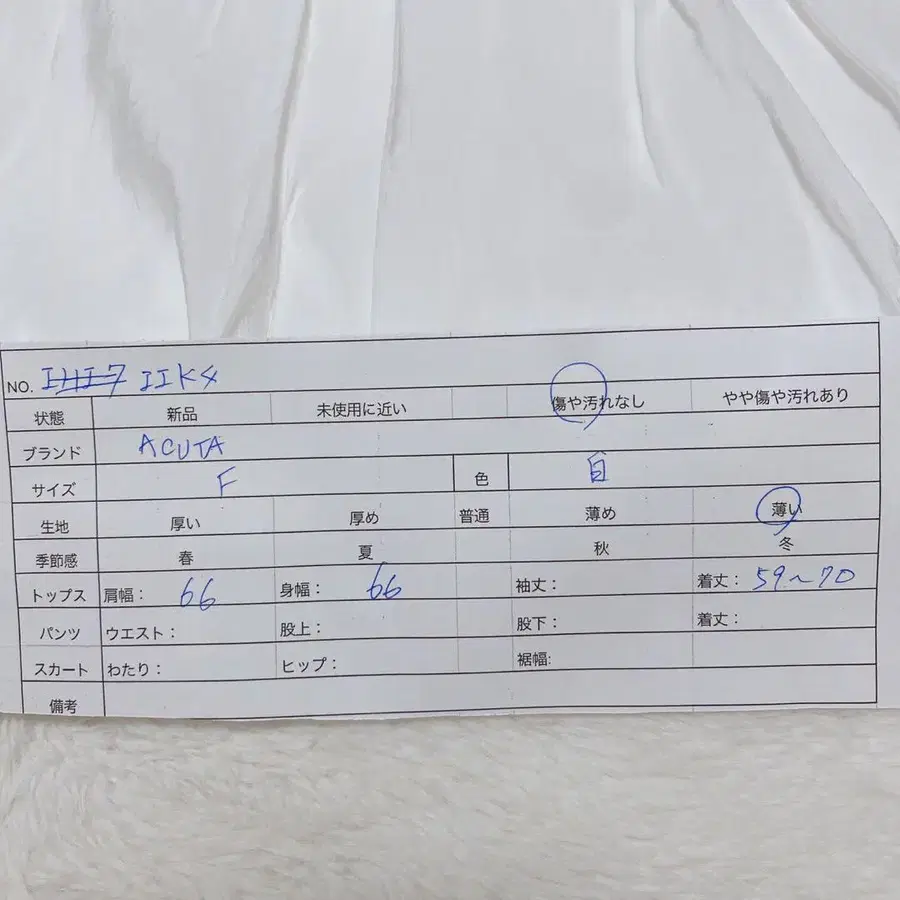 NO. IIK4
状態 新品 未使用に近い 傷や汚れなし やや傷や汚れあり
ブランド ACUTA
サイズ F 色 白
生地 厚い 厚め 普通 薄め 薄い
季節感 春 夏 秋 冬
トップス 肩幅: 66 身幅: 66 袖丈: 着丈: 59~70
パンツ ウエスト: 股上: 股下: 着丈:
スカート わたり: ヒップ: 裾幅:
備考